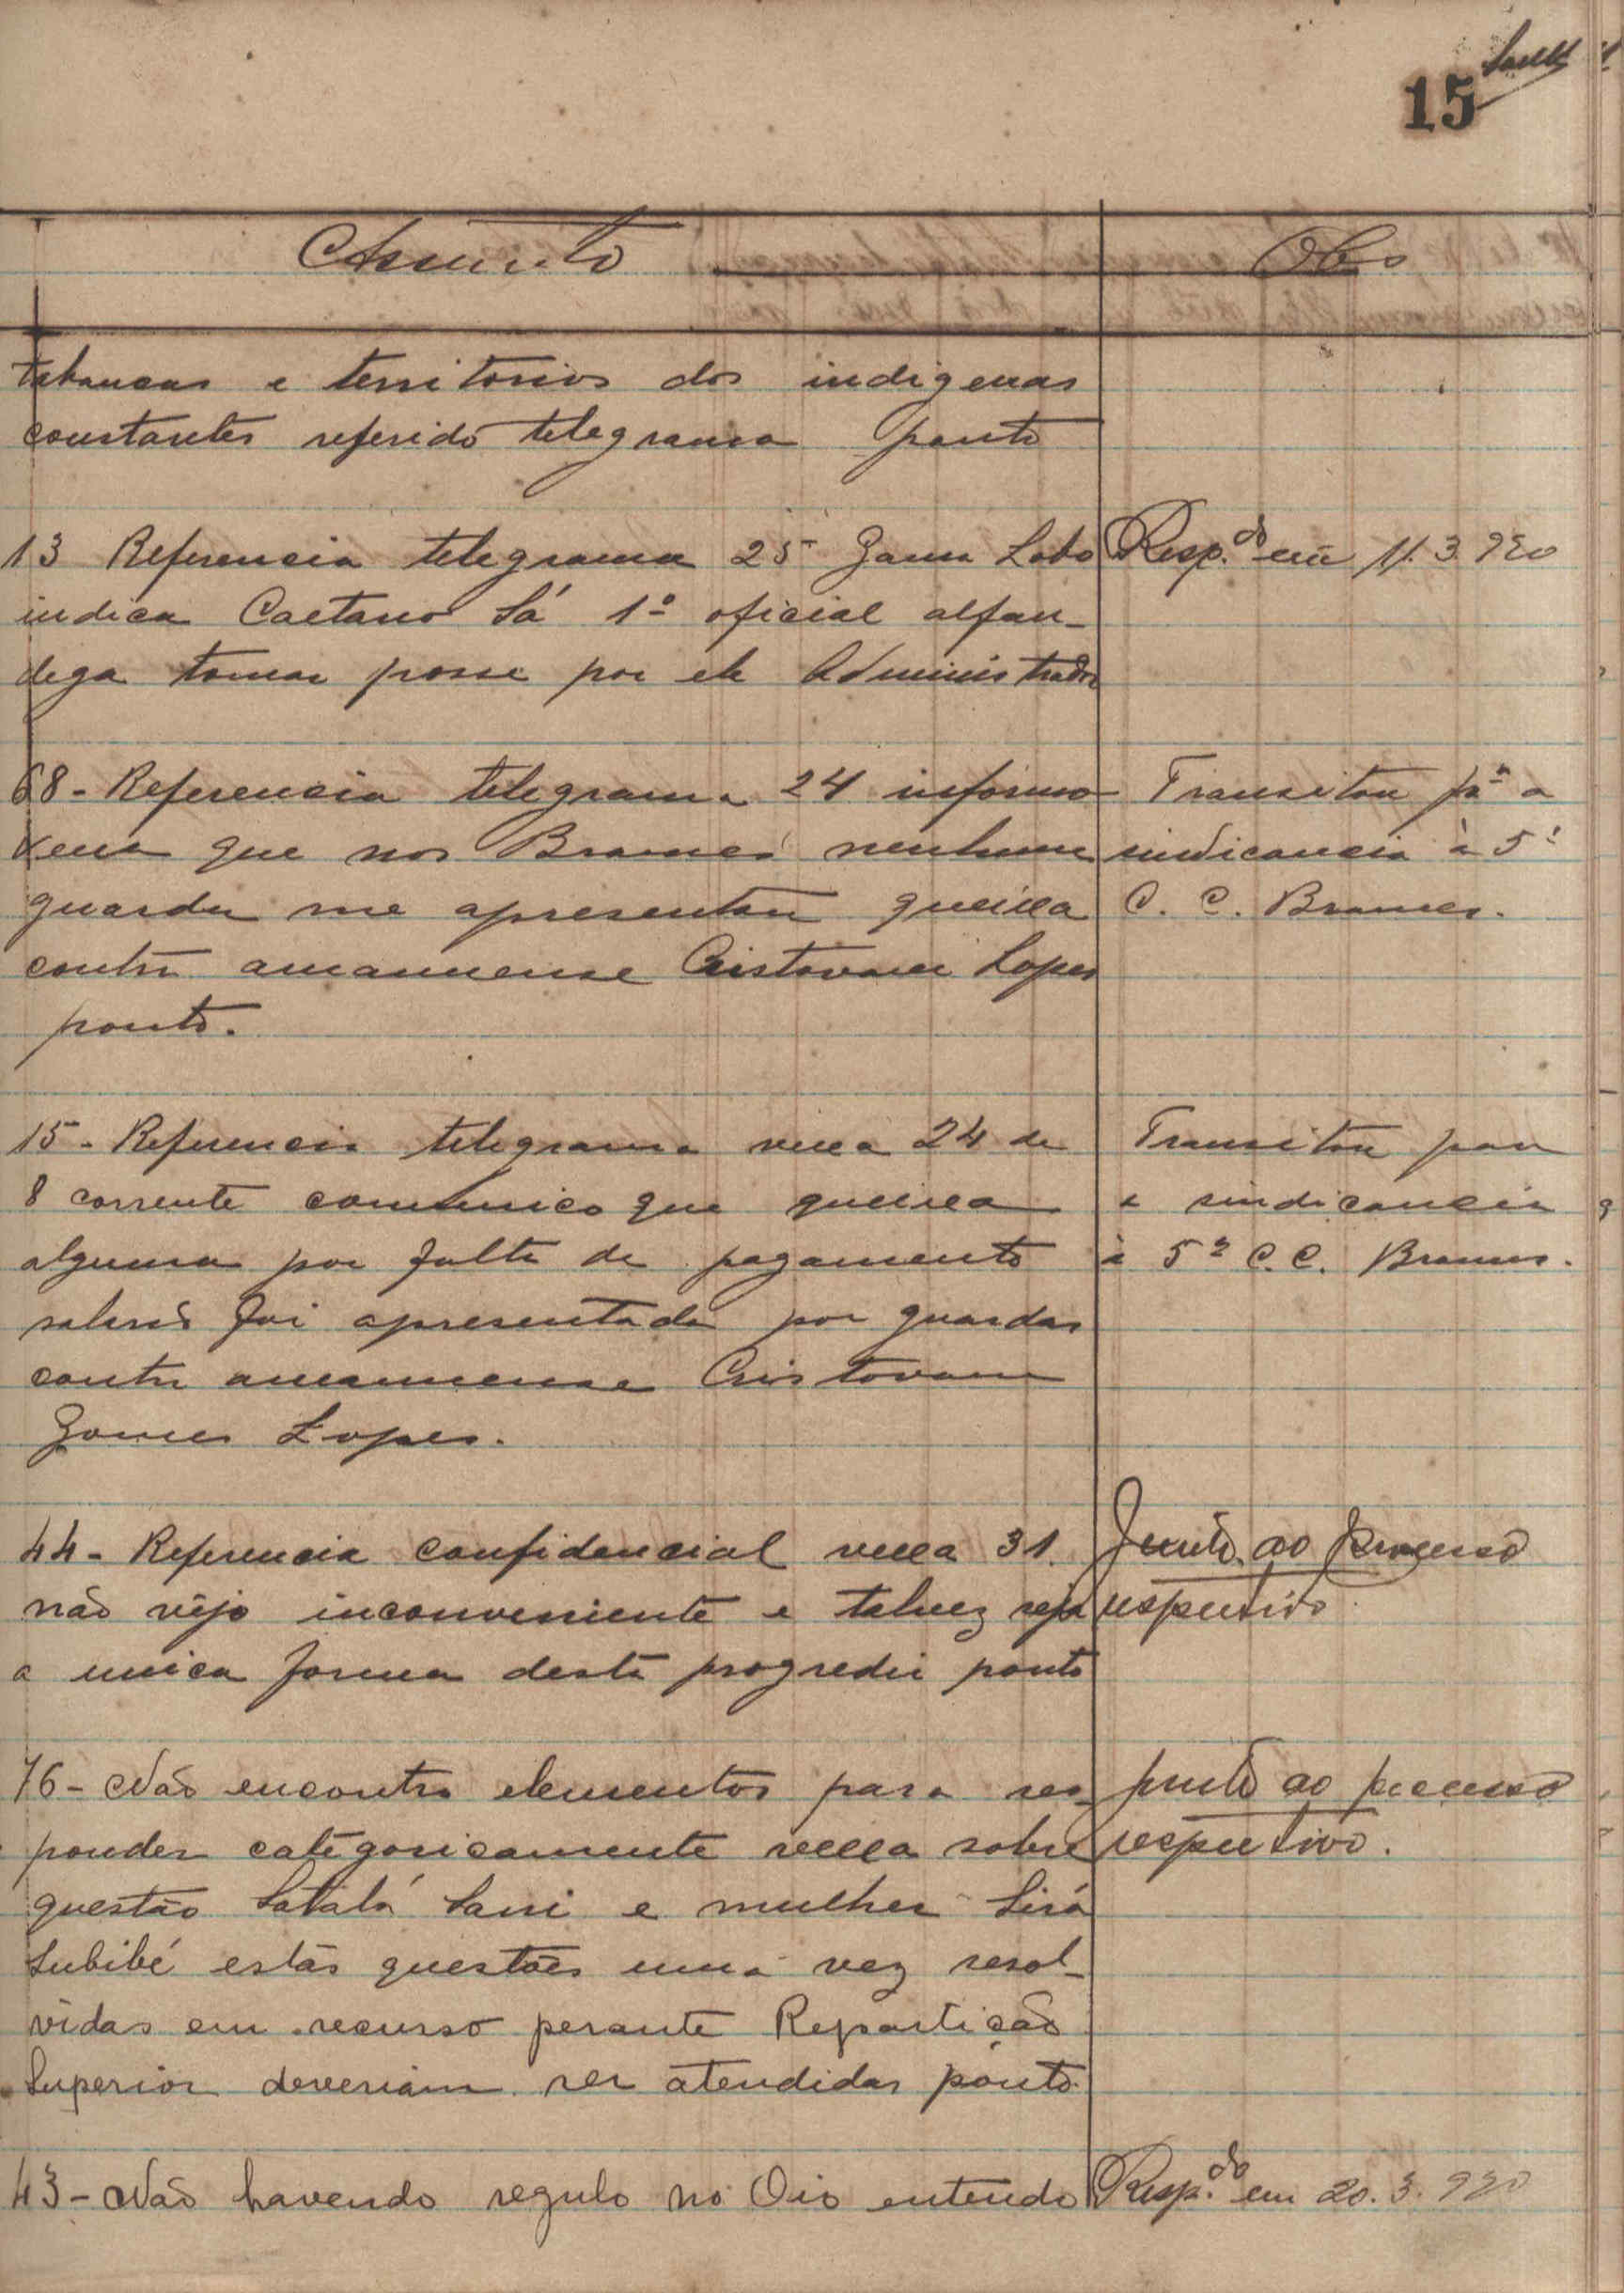 15
Assunto
Obs
tabancas e territorios dos indigenas
constantes referido telegrama ponto
13 Referencia telegrama 25 Gama Lobo
indica Caetano Sá 1º oficial alfan-
dega tomar posse por ele Administrador
Resp.do em 11.3.930
68 - Referencia telegrama 24 informo
vexa que nos Brames nenhum
guarda me apresentou queixa
contra amanuense Cristovam Lopes
ponto.
Transitou pª a
sindicancia à 5ª
C. C. Brames.
15 - Referencia telegrama vexa 24 de
8 corrente comunico que queixa
alguma por falta de pagamento
salario foi apresentada por guardas
contra amanuense Cristovam
Gomes Lopes.
Transitou para
a sindicancia
à 5ª C. C. Brames.
44 - Referencia confidencial vexa 31
não vejo inconveniente e talvez seja
a unica forma desta progredir ponto
Junto ao processo
respectivo
76 - Não encontro elementos para res-
ponder categoricamente vexa sobre
questão Satalá Sani e mulher Sirá
Subibé estas questões uma vez resol-
vidas em recurso perante Repartição
Superior deveriam ser atendidas ponto.
junto ao processo
respectivo.
43 - Não havendo regulo no Oio entendo
Resp.do em 20.3.930